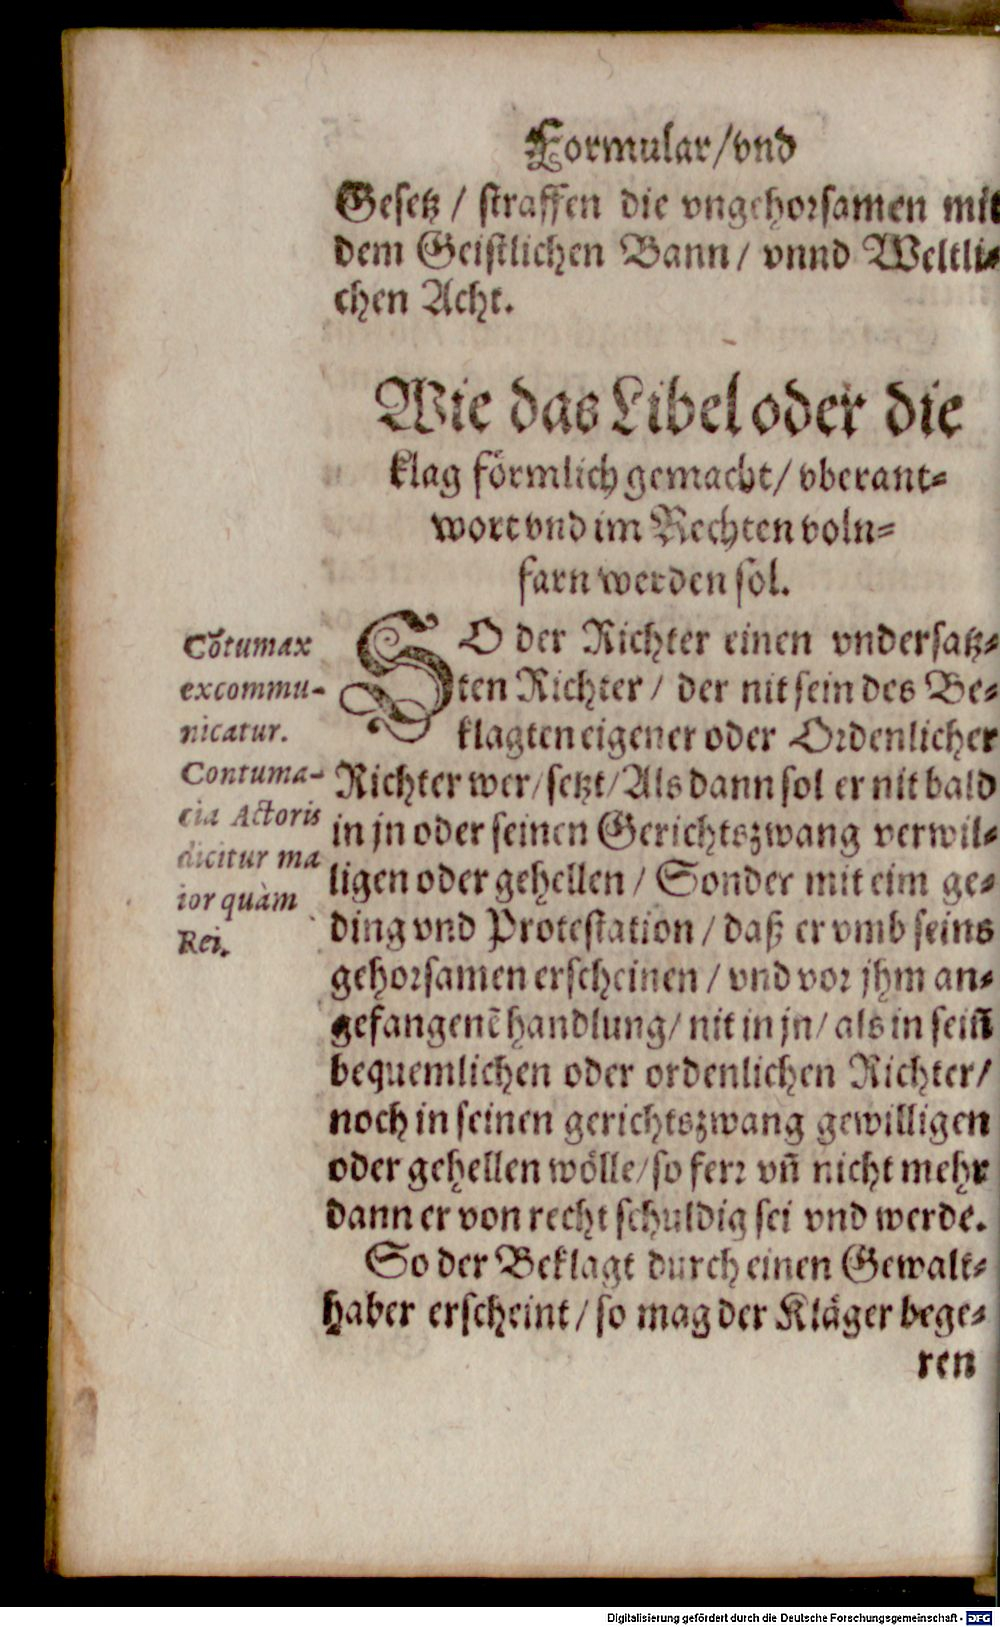 Formular/vnd
Gesetz / straffen die vngehorsamen mit
dem Geistlichen Bann/ vnnd Weltli⸗
chen Acht.
Wie das Libel oder die
klag förmlich gemacht/ vberant⸗
wort vnd im Rechten voln⸗
farn werden sol.
SO der Richter einen vndersatz⸗
ten Richter / der nit sein des Be⸗
klagten eigener oder Ordenlicher
Richter wer/setzt/Als dann sol er nit bald
in jn oder seinen Gerichtszwang verwil⸗
ligen oder gehellen / Sonder mit eim ge⸗
ding vnd Protestation / daß er vmb seins
gehorsamen erscheinen / vnd vor jhm an⸗
gefangenẽ handlung/ nit in jn/ als in seiñ
bequemlichen oder ordenlichen Richter/
noch in seinen gerichtszwang gewilligen
oder gehellen wölle/so ferr vñ nicht mehr
dann er von recht schuldig sei vnd werde.
So der Beklagt durch einen Gewalt⸗
haber erscheint / so mag der Kläger bege⸗
ren
Cõtumax
excommu-
nicatur.
Contuma-
cia Actoris
dicitur ma
ior quàm
Rei.
Digitalisierung gefördert durch die Deutsche Forschungsgemeinschaft - DFG